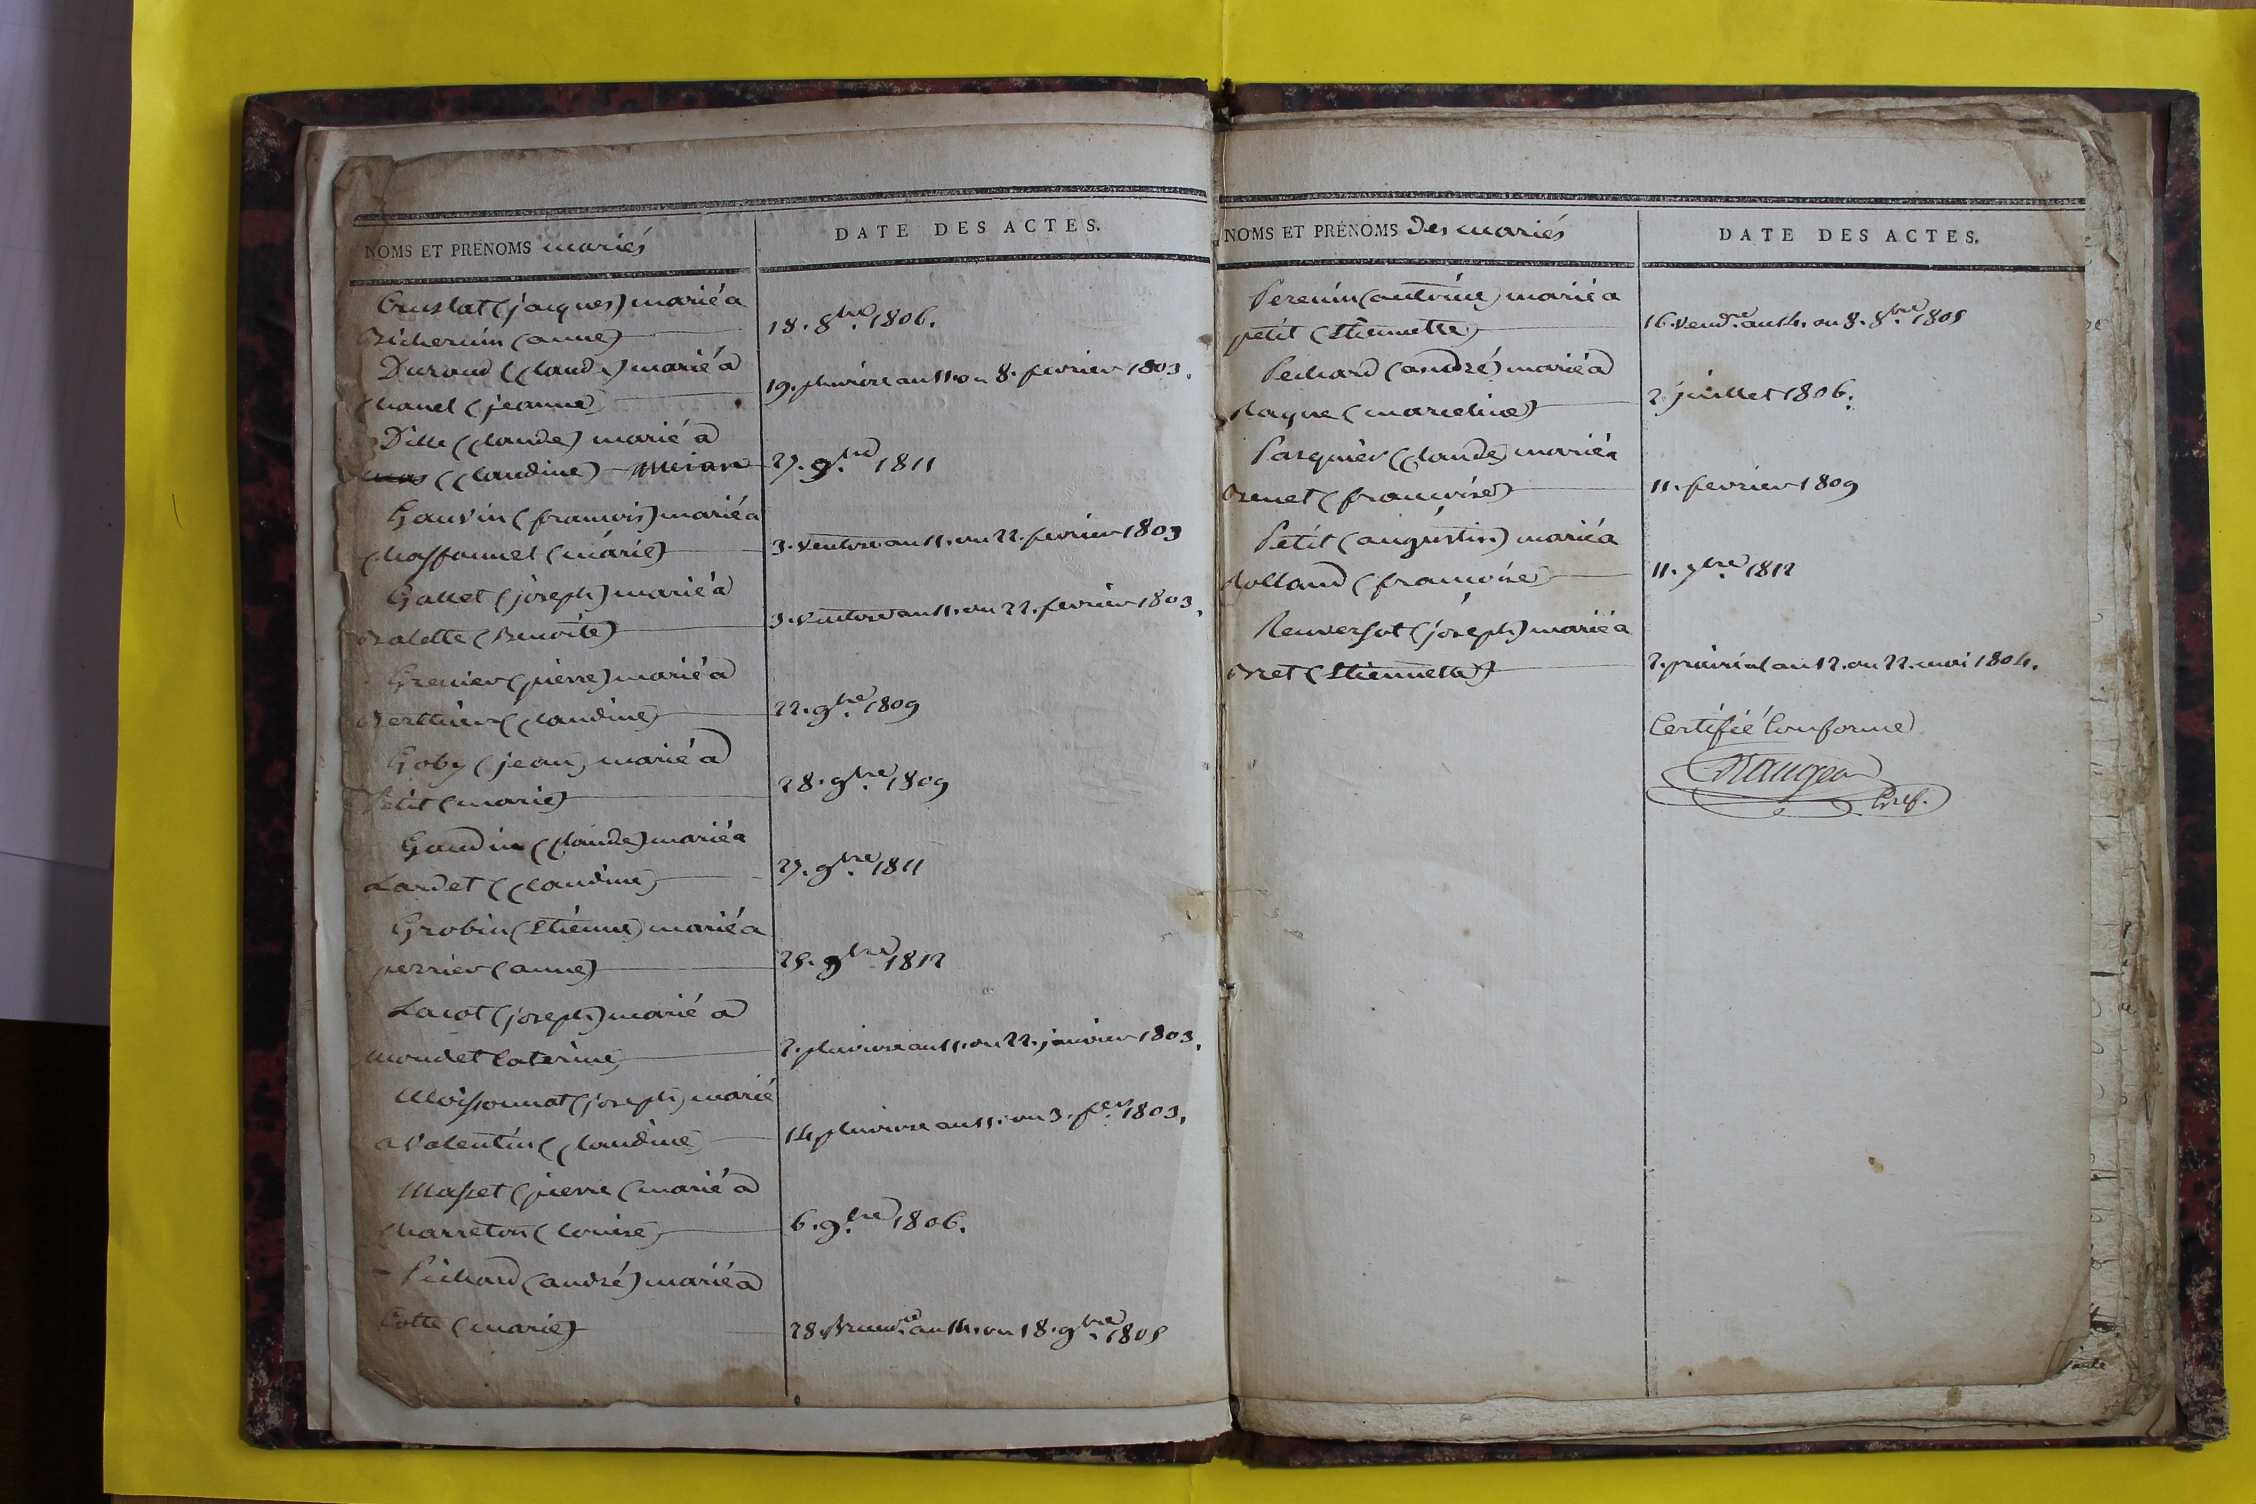 NOMS ET PRÉNOMS mariés
DATE DES ACTES.
(jacques) marié a
(anne)
18. 8bre 1806.
Durand (Claude) marié a
Chanel (jeanne)
19. pluviose an 11. ou 8. fevrier 1803.
Dille (Claude) marié a
(Claudine)
27. 9bre 1811
Gauvin (francois) marié a
Chassonnel (marie)
3. Ventose an 11. ou 22. fevrier 1803
Gallet (joseph) marié a
Balette (Benoite)
3. Ventose an 11. ou 22. fevrier 1803.
Grenier (pierre) marié a
Berthier (Claudine)
22. 9bre 1809
Goby (jean) marié a
Petit (marie)
28. 9bre 1809
Gaudin (Claude) marié a
Lardet (Claudine)
27. 9bre 1811
Grobin (Etienne) marié a
perrier (anne)
25. 9bre 1812
Lacot (joseph) marié a
mondet Caterine
2. pluviose an 11. ou 22. janvier 1803.
Moissonnat (joseph) marié
a Valentin (Claudine)
14 pluviose an 11. ou 3. fer. 1803.
Masset (pierre (marié a
Charreton (louise)
6. 9bre 1806.
Pichard (andré) marié a
Cotte (marie)
28. Brumre. an 14. ou 18. 9bre 1805
NOMS ET PRÉNOMS Des mariés
DATE DES ACTES.
Perenin (antoine) marié a
petit (Etiennette)
16. Vendre. an 14. ou 8. 8bre 1805
Pechard (andré) marié a
(marceline)
2. juillet 1806.
Pasquier (Claude) marié a
(francoise)
11. fevrier 1809
Petit (augustin) marié a
Rolland (francoise)
11. 1812
(joseph) marié a
Bret (Etiennette)
2. prairial an 12. ou 22. mai 1804.
Certifié Conforme
Gref.